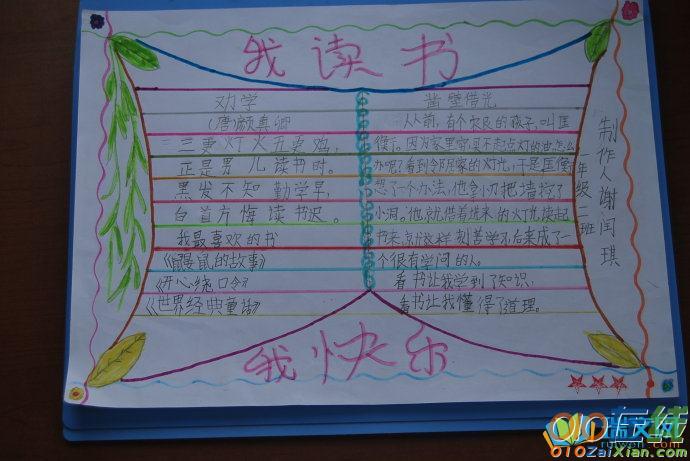 我读书
劝学
(唐)颜真卿
三更灯火五更鸡,
正是男儿读书时。
黑发不知勤学早,
白首方悔读书迟。
我最喜欢的书
《鼹鼠的故事》
《开心绕口令》
《世界经典童话》
凿壁借光
从前,有个农民的孩子,叫匡
衡。因为家里穷,买不起点灯的油,怎么
办呢?看到邻居家的灯光,于是匡衡
想了一个办法,他拿小刀把墙挖了
小洞。他就借着进来的灯光读起
书来,就这样刻苦学,后来成了一
个很有学问的人。
看书让我学到了知识,
看书让我懂得了道理。
年级二班
制作人谢闫琪
我快乐
在线
010ZaiXian.com